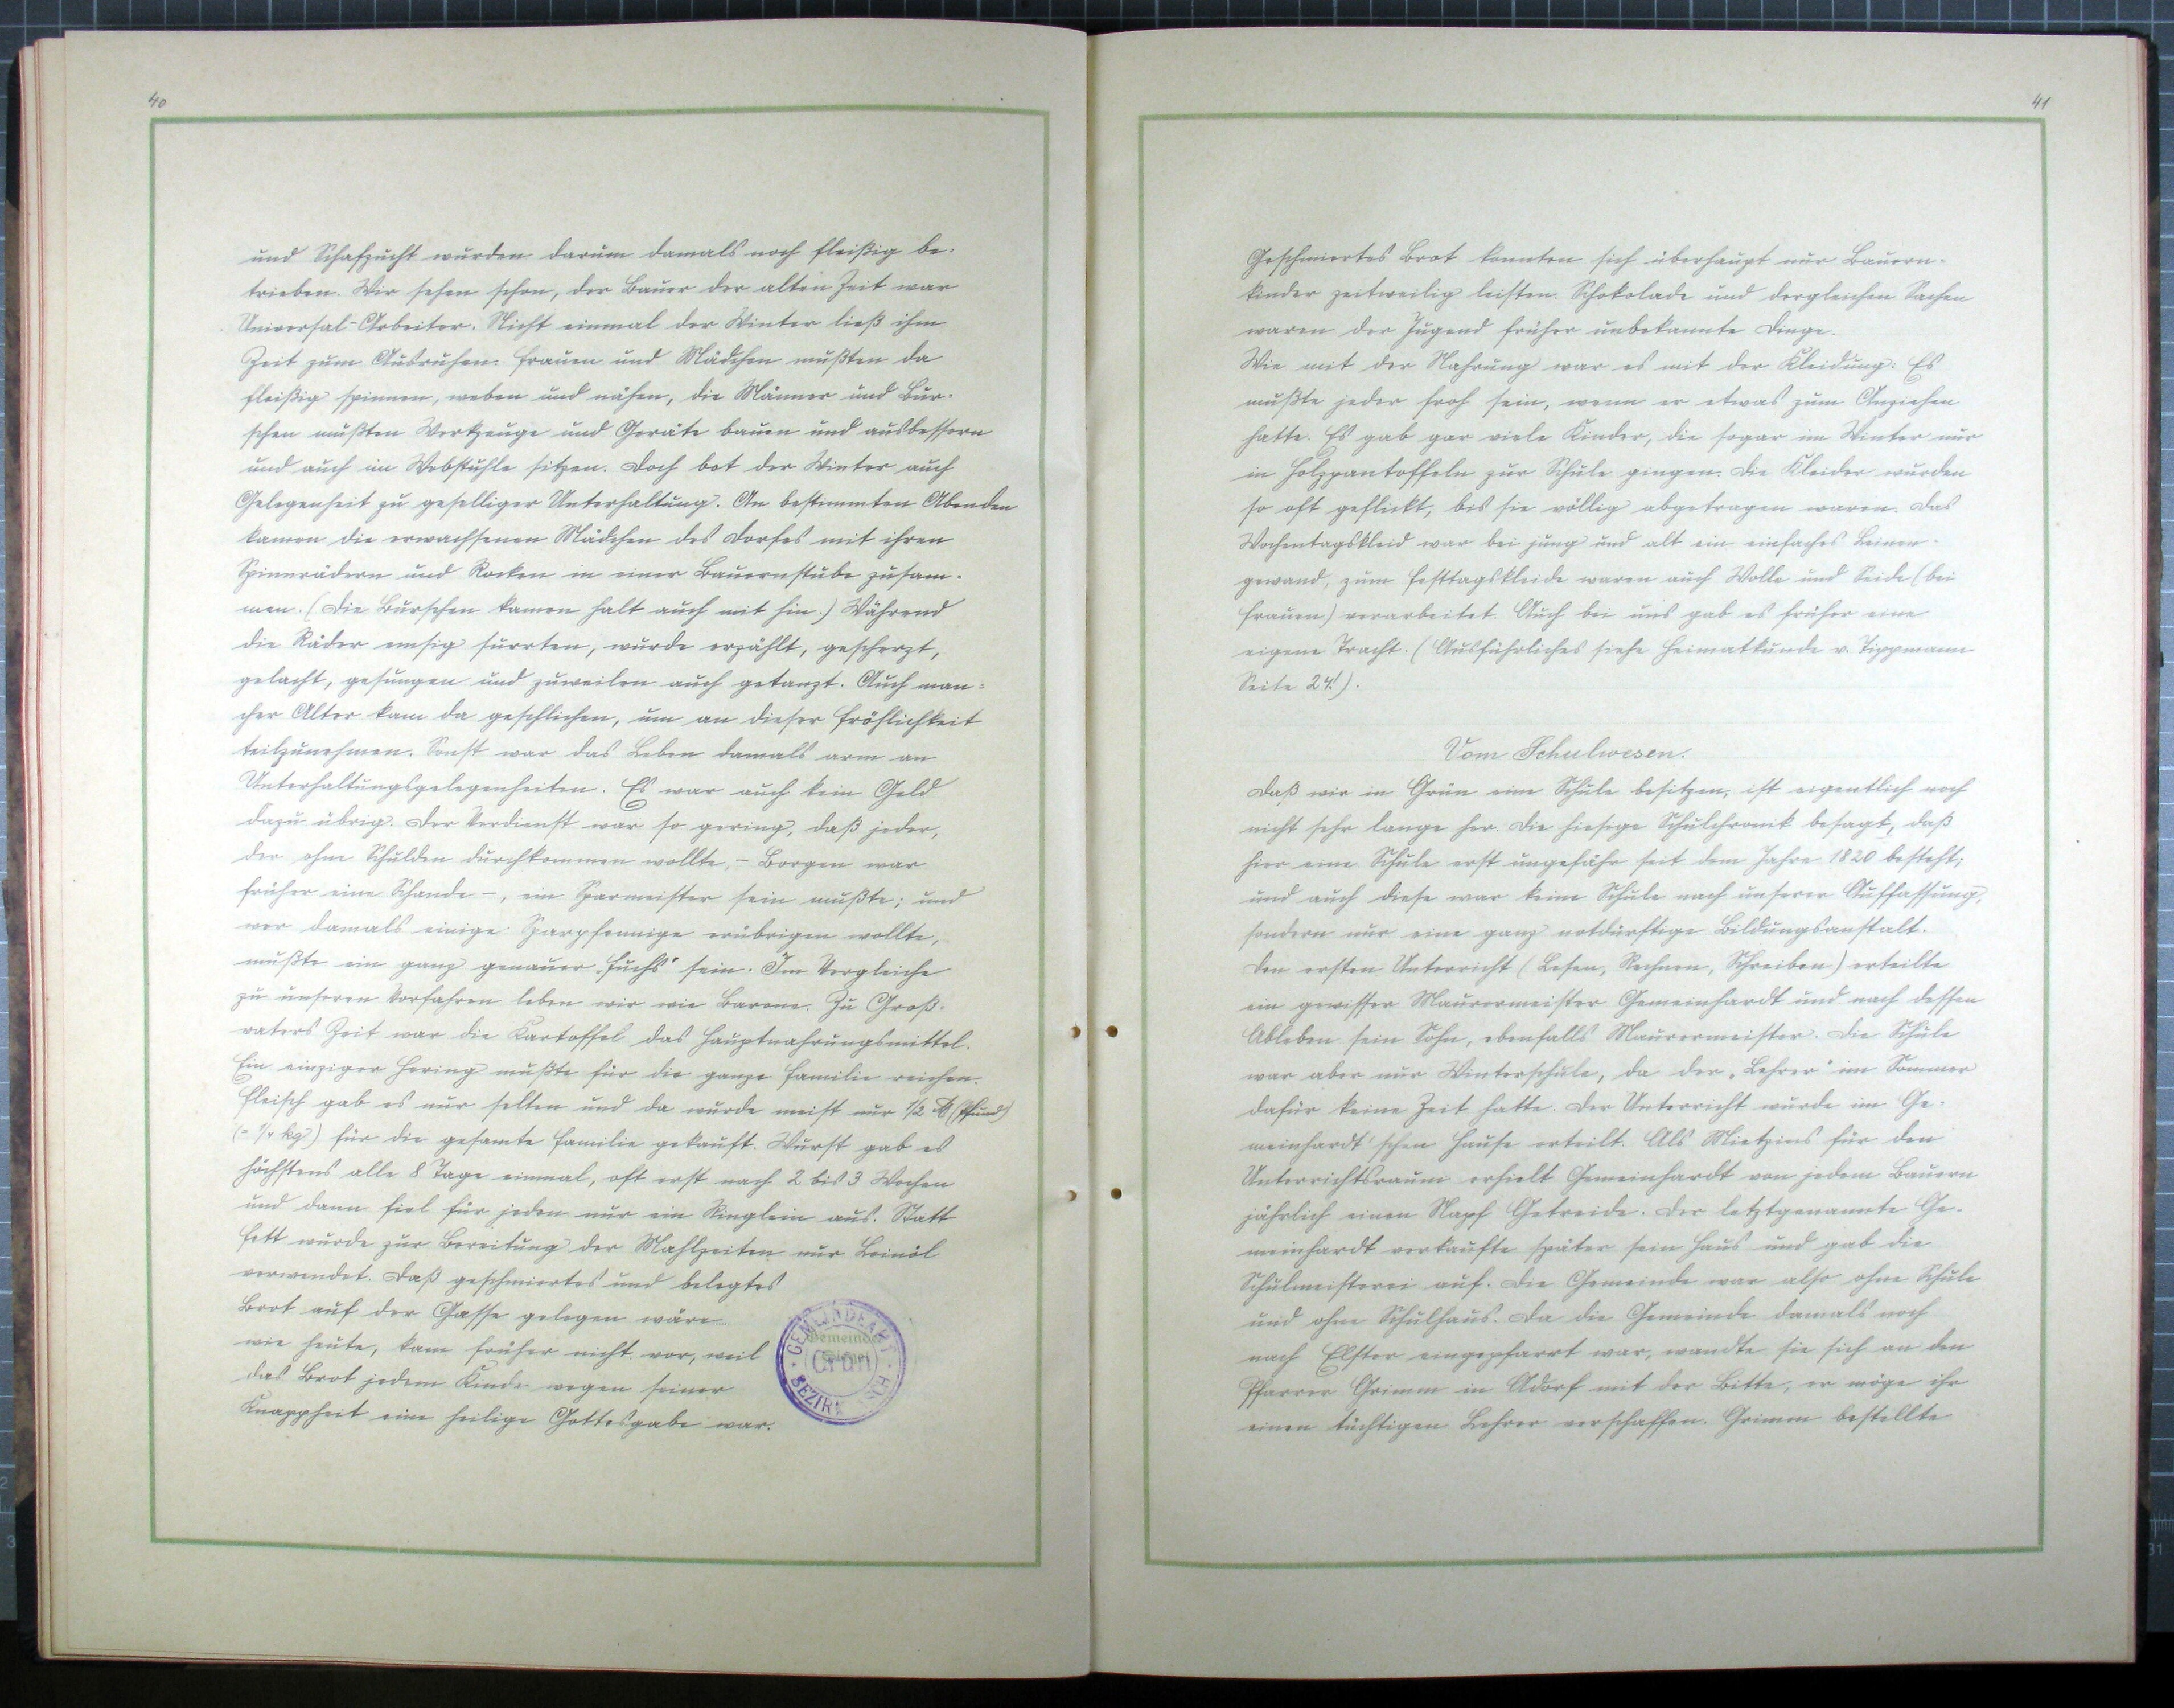 40
und Schafzucht wurden darum damals noch fleißig be-
trieben. Wir sehen schon, der Bauer der alten Zeit war
Universal-Arbeiter. Nicht einmal der Winter ließ ihm
Zeit zum Ausruhen. Frauen und Mädchen mußten da
fleißig spinnen, weben und nähen, die Männer und Bur-
schen mußten Werkzeuge und Geräte bauen und ausbessern
und auch im Webstuhle sitzen. Doch bot der Winter auch
Gelegenheit zu geselliger Unterhaltung. An bestimmten Abenden
kamen die erwachsenen Mädchen des Dorfes mit ihren
Spinnrädern und Rocken in einer Bauernstube zusam-
men. (Die Burschen kamen halt auch mit hin.) Während
die Räder emsig surrten, wurde erzählt, gescherzt,
gelacht, gesungen und zuweilen auch getanzt. Auch man-
cher Alter kam da geschlichen, um an dieser Fröhlichkeit
teilzunehmen. Sonst war das Leben damals arm an
Unterhaltungsgelegenheiten. Es war auch kein Geld
dazu übrig. Der Verdienst war so gering, daß jeder,
der ohne Schulden durchkommen wollte, – Borgen war
früher eine Schande –, ein Sparmeister sein mußte; und
wer damals einige Sparpfennige erübrigen wollte,
mußte ein ganz genauer „Fuchs" sein. Im Vergleiche
zu unseren Vorfahren leben wir wie Barone. Zu Groß-
vaters Zeit war die Kartoffel das Hauptnahrungsmittel.
Ein einziger Hering mußte für die ganze Familie reichen.
Fleisch gab es nur selten und da wurde meist nur 1/2 ℔ (Pfund)
(= 1/4 kg) für die gesamte Familie gekauft. Wurst gab es
höchstens alle 8 Tage einmal, oft erst nach 2 bis 3 Wochen
und dann fiel für jeden nur ein Ringlein aus. Statt
Fett wurde zur Bereitung der Mahlzeiten nur Leinöl
verwendet. Daß geschmiertes und belegtes
Brot auf der Gasse gelegen wäre
wie heute, kam früher nicht vor, weil
das Brot jedem Kinde wegen seiner
Knappheit eine heilige Gottesgabe war.
GEMEINDEAMT
Gemeinde
Grün
BEZIRK ASCH
41
Geschmiertes Brot konnten sich überhaupt nur Bauern-
kinder zeitweilig leisten. Schokolade und dergleichen Sachen
waren der Jugend früher unbekannte Dinge.
Wie mit der Nahrung war es mit der Kleidung: Es
mußte jeder froh sein, wenn er etwas zum Anziehen
hatte. Es gab gar viele Kinder, die sogar im Winter nur
in Holzpantoffeln zur Schule gingen. Die Kleider wurden
so oft geflickt, bis sie völlig abgetragen waren. Das
Wochentagskleid war bei jung und alt ein einfaches Leinen-
gewand, zum Festtagskleide waren auch Wolle und Seide (bei
Frauen) verarbeitet. Auch bei uns gab es früher eine
eigene Tracht. (Ausführliches siehe Heimatkunde v. Tippmann
Seite 24!).
Vom Schulwesen.
Daß wir in Grün eine Schule besitzen, ist eigentlich noch
nicht sehr lange her. Die hiesige Schulchronik besagt, daß
hier eine Schule erst ungefähr seit dem Jahre 1820 besteht;
und auch diese war keine Schule nach unserer Auffassung,
sondern nur eine ganz notdürftige Bildungsanstalt.
Den ersten Unterricht (Lesen, Rechnen, Schreiben) erteilte
ein gewisser Maurermeister Gemeinhardt und nach dessen
Ableben sein Sohn, ebenfalls Maurermeister. Die Schule
war aber nur Winterschule, da der „Lehrer" im Sommer
dafür keine Zeit hatte. Der Unterricht wurde im Ge-
meinhardt'schen Hause erteilt. Als Mietzins für den
Unterrichtsraum erhielt Gemeinhardt von jedem Bauern
jährlich einen Napf Getreide. Der letztgenannte Ge-
meinhardt verkaufte später sein Haus und gab die
Schulmeisterei auf. Die Gemeinde war also ohne Schule
und ohne Schulhaus. Da die Gemeinde damals noch
nach Elster eingepfarrt war, wandte sie sich an den
Pfarrer Grimm in Adorf mit der Bitte, er möge ihr
einen tüchtigen Lehrer verschaffen. Grimm bestellte